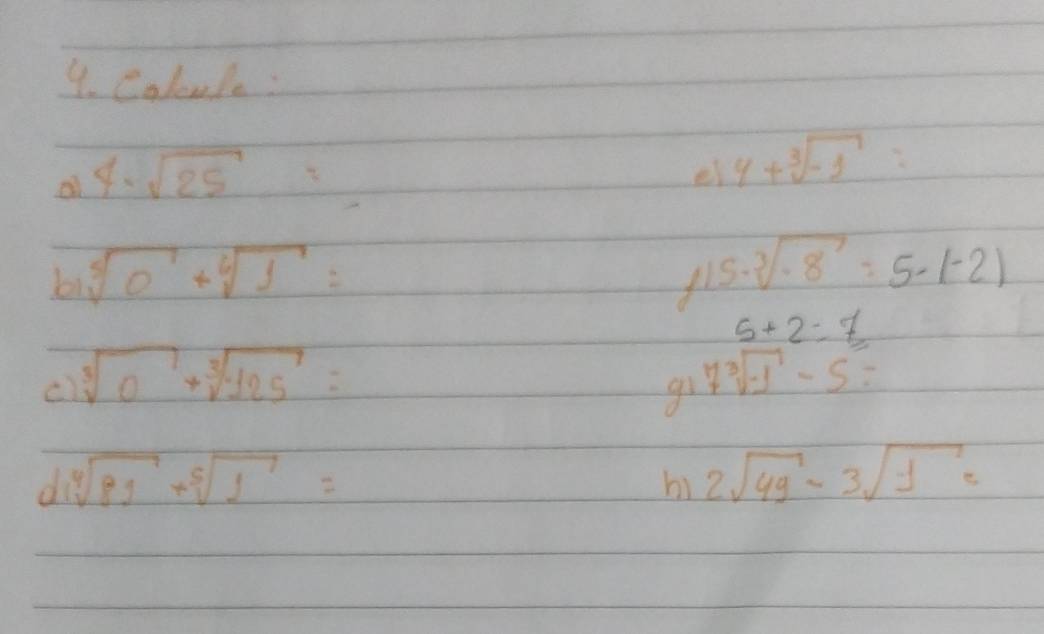 4. Calcule:
a) 4 - √25 =
e) 4 + ∛-1 =
b) ⁵√0 + ⁶√1 =
f) 5 - ∛-8 = 5 - (-2)
5 + 2 = 7
c) ∛0 + ∛-125 =
g) 7∛-1 - 5 =
d) ⁴√81 + ⁵√1 =
h) 2√49 - 3√-1 =